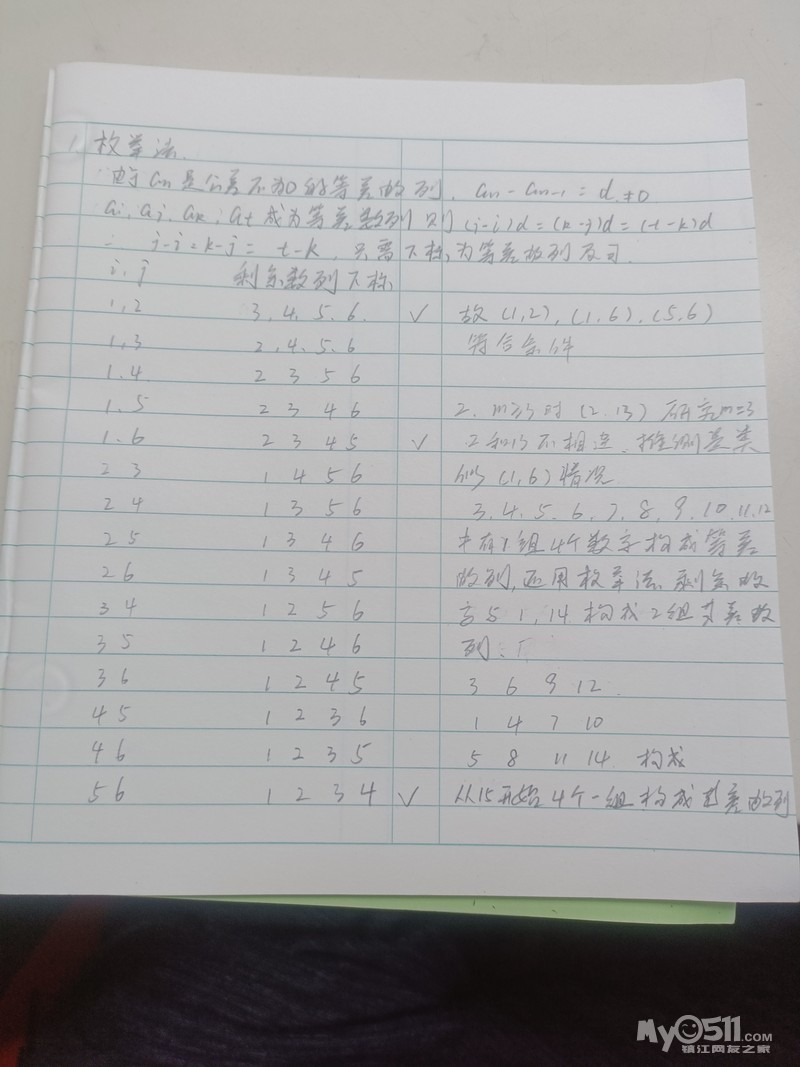 1. 枚举法.
由于an是公差不为0的等差数列, an-an-1=d≠0
ai, aj, ak, at 成为等差数列 则 (j-i)d=(k-j)d=(t-k)d
∴ j-i=k-j=t-k, 只需下标为等差数列即可.
i, j 剩余数列下标
1,2 3,4,5,6. ✓
1,3 2,4,5,6
1.4 2 3 5 6
1.5 2 3 4 6
1.6 2 3 4 5 ✓
2 3 1 4 5 6
2 4 1 3 5 6
2 5 1 3 4 6
2 6 1 3 4 5
3 4 1 2 5 6
3 5 1 2 4 6
3 6 1 2 4 5
4 5 1 2 3 6
4 6 1 2 3 5
5 6 1 2 3 4 ✓
故 (1,2), (1.6), (5.6)
符合条件
2. m≥3时 (2.13) 研究m=3
2和13不相连, 推测是类
似 (1,6) 情况
3.4.5.6.7.8.9.10.11.12
中有1组4个数字构成等差
数列, 还用枚举法, 剩余数
字与1,14构成2组等差数
列:
3 6 9 12.
1 4 7 10
5 8 11 14 构成
从15开始4个一组构成等差数列
My0511.COM
镇江网友之家